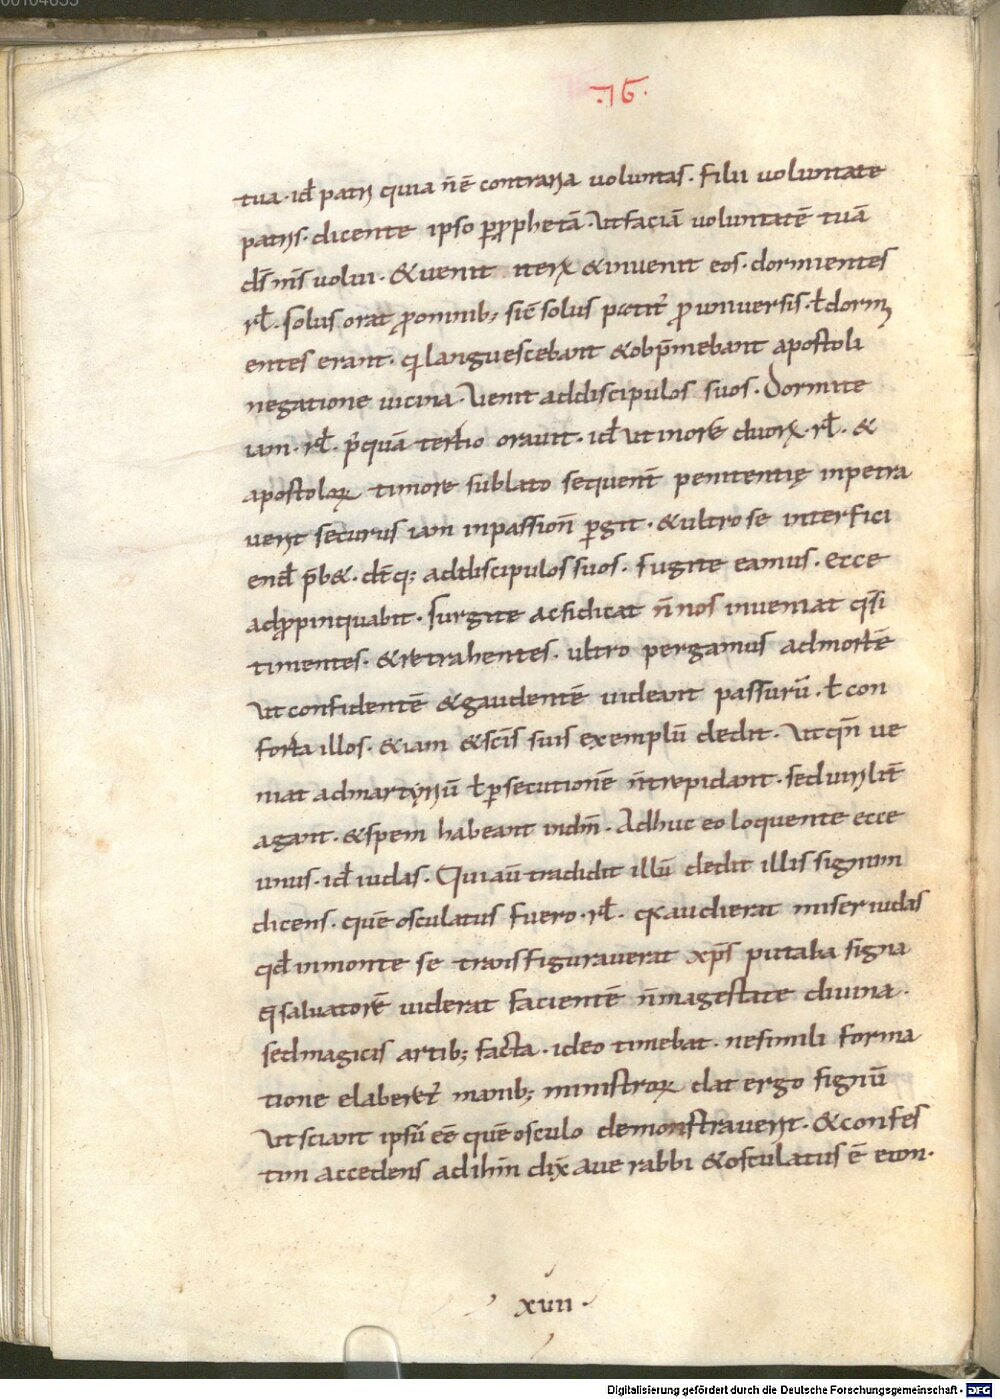 .76.
tua · id̄ patri quia n̄ ē contraria voluntas · filii voluntate
patris · dicente ipso ꝑ prophetā · Ut faciā voluntatē tuā
ds̄ ms̄ volui · & venit iterꝝ & invenit eos · dormientes
rl̄ · solus orat ꝓ omnib; sic̄ solus patit̄ ꝓ universis · ł dormi
entes erant · qi languescebant & obp̄mebant apostoli
negatione vicina · Venit ad discipulos suos · Dormite
iam · rl̄ · p̄quā tertio oravit · id̄ ut in orē duorꝝ · rl̄ · &
apostoloꝝ timore sublato sequent̄ penitentię inpetra
verit securus iam in passion̄ ꝑgit · & ultro se interfici
end̄ p̄b& · dc̄q; ad discipulos suos · surgite eamus · ecce
adꝓpinquabit · surgite ac si dicat n̄ nos inveniat qs̄i
timentes · & retrahentes · ultro pergamus ad mortē
ut confidentē & gaudentē videant passurū · ł con
forta illos · & iam & scīs suis exemplū dedit · Ut qn̄ ve
niat ad martyriū ł ꝑsecutionē n̄ trepidant · sed virilit̄
agant · & spem habeant in dn̄i · Adhuc eo loquente ecce
unus · id̄ iudas · Qui aū tradidit illū dedit illis signum
dicens · quē osculatus fuero · rl̄ · q̄a audierat miser iudas
qd̄ in monte se transfiguraverat xps̄ putaba signa
q̄ salvatorē viderat facientē n̄ magestate divina ·
sed magicis artib; facta · ideo timebat · ne simili forma
tione elaberet̄ manib; ministroꝝ dat ergo signū
Ut sciant ipsū eē quē osculo demonstraverit · & confes
tim accedens ad ihm̄ dix̄ ave rabbi & osculatus ē eum ·
xviii ·
Digitalisierung gefördert durch die Deutsche Forschungsgemeinschaft - DFG